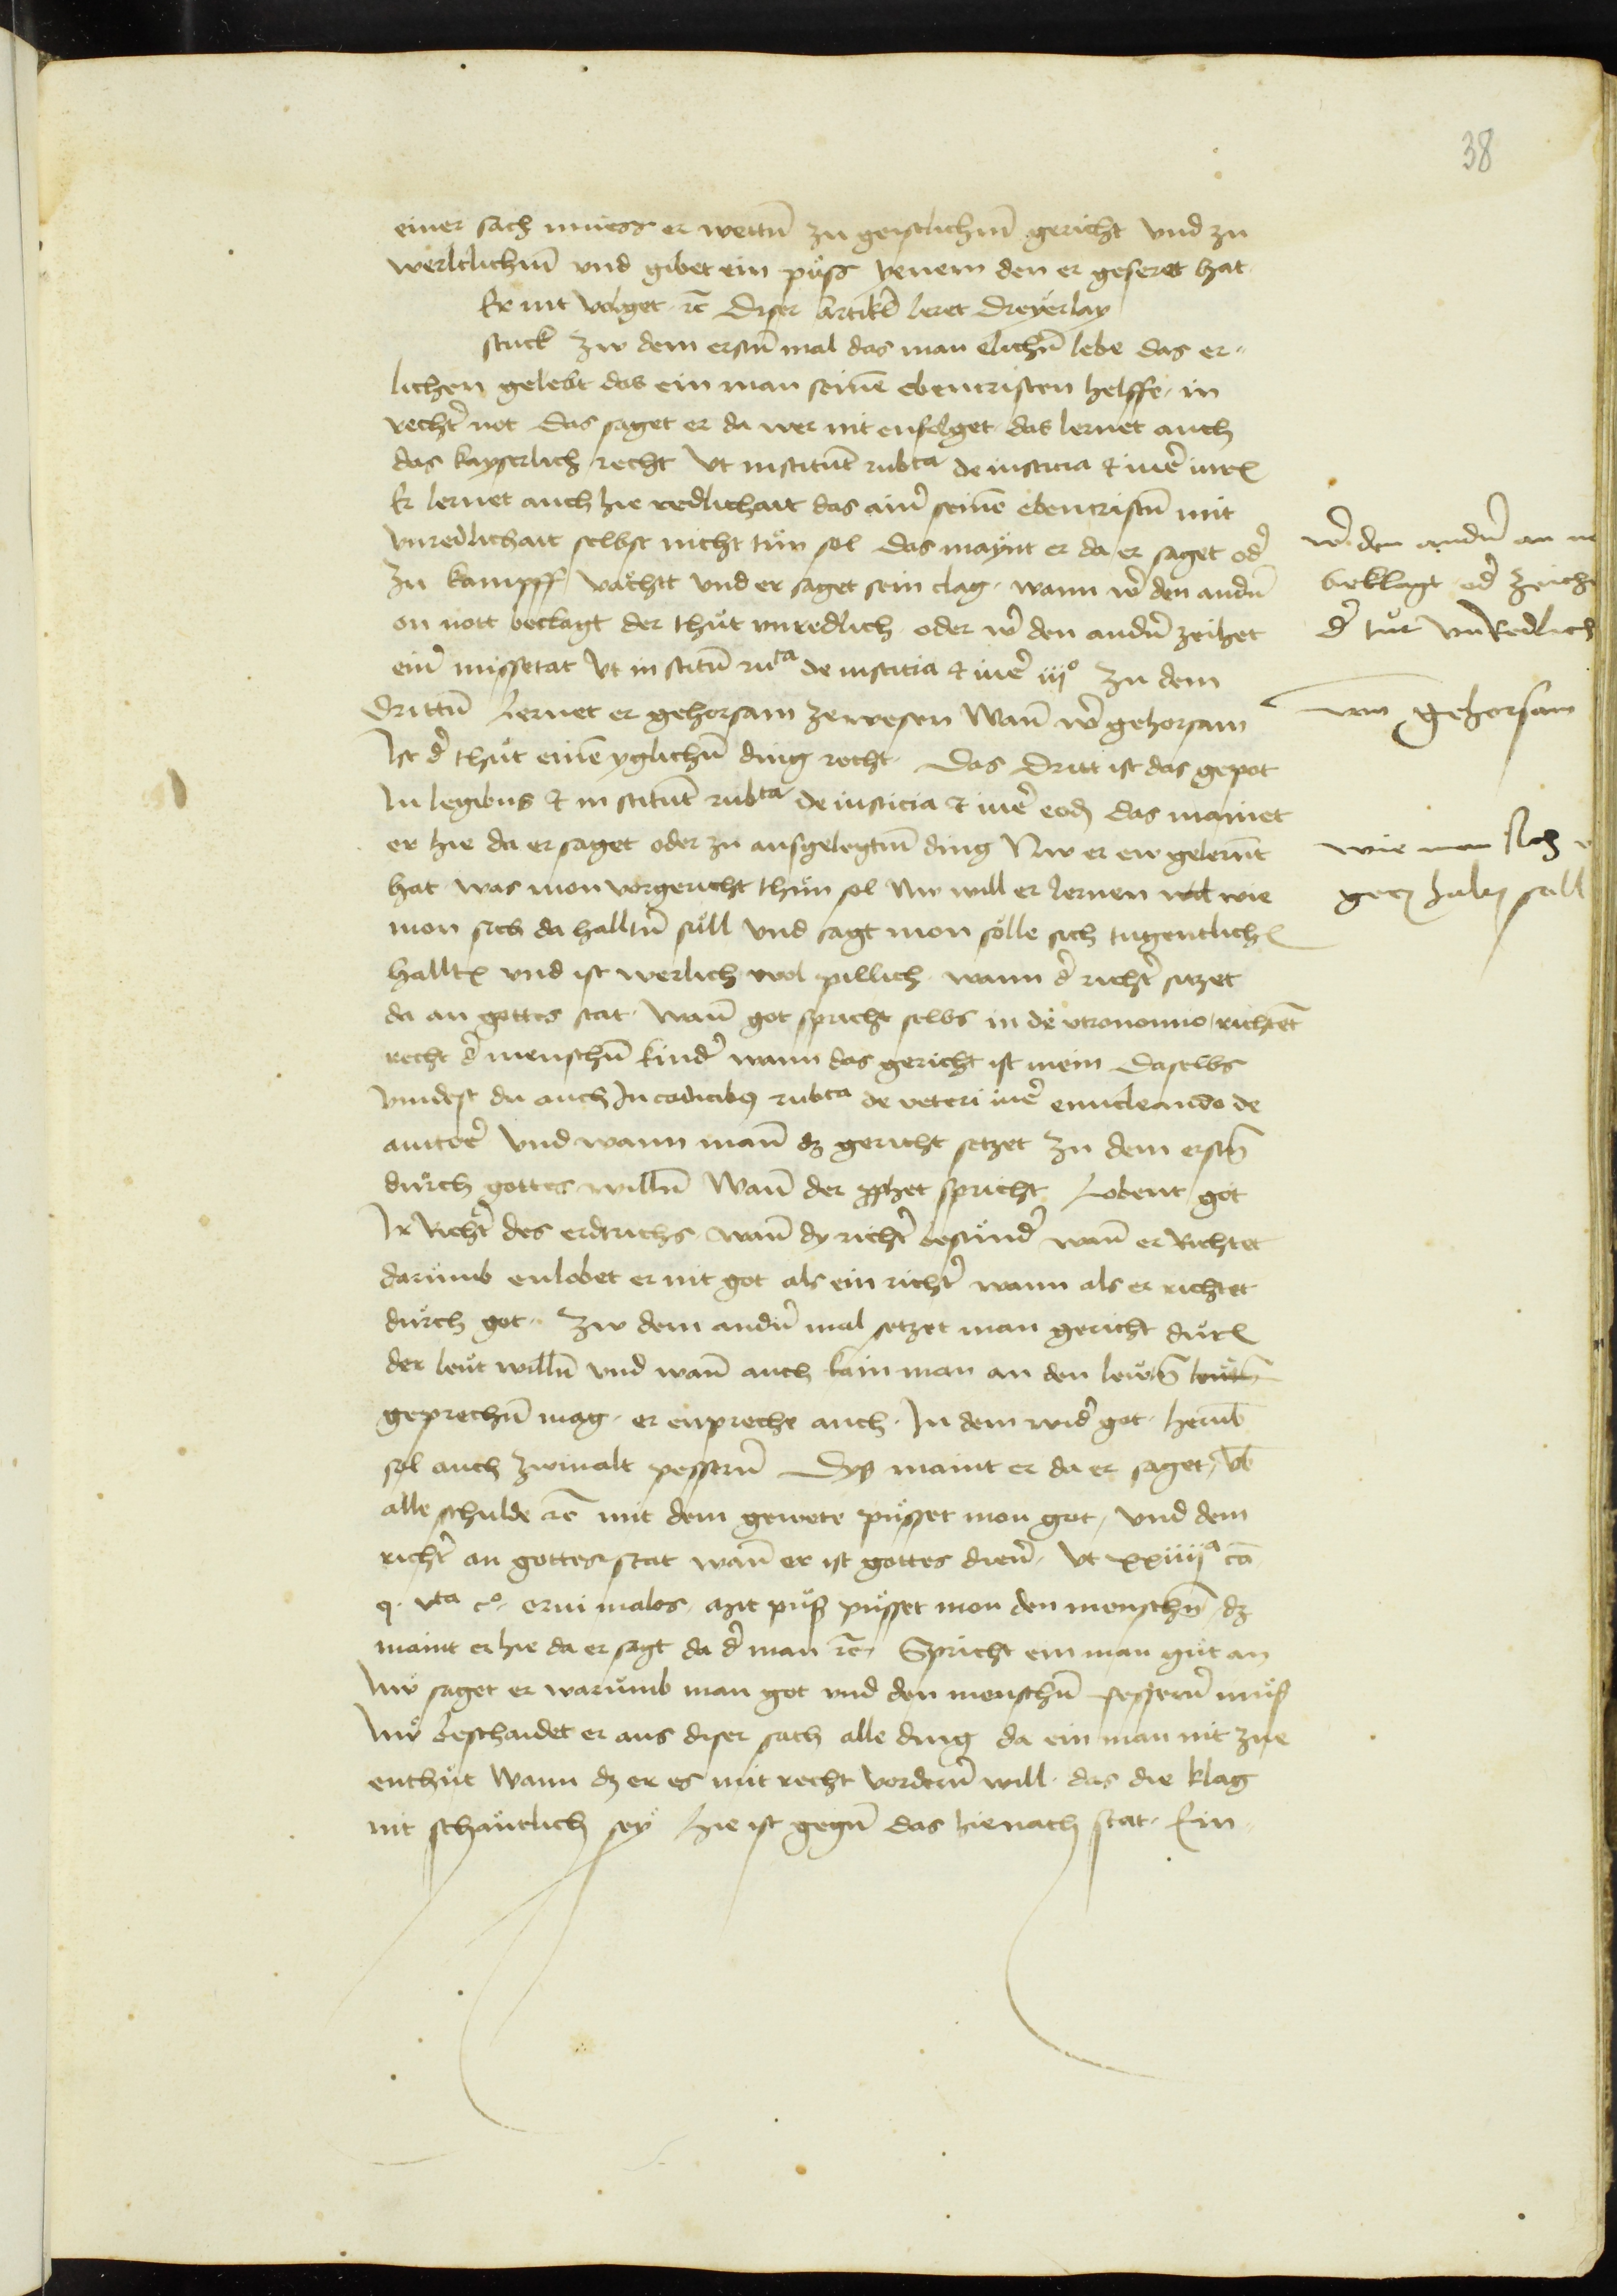 38
einer sach muess er wettn̄ zu geistlichm̄ gericht vnd zu
werltlichm̄ vnd gibet ein půss yenem den er geseret hat
Er nit volget ꝛc Diser Artikl̄ leret dreyerlay
stuck zw dem erstn̄ mal das man elichn̄ lebe das er-
lichen gelebt das ein man seinē ebencristen helffe in
recht̄ not Das saget er da wer nit enfolget das lernet auch
das kayserlich recht Vt institut̄ rubca de iusticia et iur̄e
Er lernet auch hie redlichait das ain̄ seinē ebencristn̄ mit
vnredlichait selbst nicht tůn sol das maynt er da er saget od̄
zu kampff vächtt vnd er saget sein clag wann w̄ den andn̄
on nott beclagt der thůt vnredlich oder w̄ den andn̄ zeihet
ein̄ missetat Vt in stitū ruca de iusticia et iur̄e iijo Zu dem
Drittn̄ Lernet er gehorsam ze wesen Wan̄ w̄ gehorsam
Ist d̄ thůt einē yglichn̄ ding recht Das dritt ist das gepot
In legibus et in stitut̄ rubca de iusticia et iur̄e eod das mainet
er hie da er saget oder zu ausgelegtm̄ ding Nw er ew gelernt
hat was mon vorgericht thůn sol Nw will er lernen wie
mon sich da halltn̄ sůll vnd sagt mon sölle sich tugentlich
hallt vnd ist werlich wol pillich wann d̄ richt̄ sitzet
da an gottes stat wan̄ got spricht selbs in deutronomio richtet
recht d̄ menschn̄ kind̄ wann das gericht ist mein Daselbs
vindest du auch In codicibꝰ rubca de veteri iur̄e enucleando de
auctor̄e Vnd wann man̄ dz gericht setzet Zu dem erstn̄
durch gottes willn̄ Wan̄ der pphet spricht Lobent got
Ir Richt̄ des erdtrichs wan̄ dy richt̄ besund̄ wan̄ er Richtet
darumb enlobet er nit got als ein richt̄ wann als er richtet
durch got Zw dem andn̄ mal setzet man gericht durch
der leut willn̄ vnd wan̄ auch kain man an den lewtn̄
geprechn̄ mag er enpreche auch In dem wid̄ got Herūb
sol auch zwiualt pessern̄ Dys maint er da er saget Vb
alle schulde ꝛc mit dem gewete půsset mon got vnd dem
richt̄ an gottes stat wan̄ er ist gottes dien̄ Vt xxiiija cā
q. vta co. erui malos Mit půß půsset mon den menschn̄ dz
maint er hie da er sagt da d̄ man ꝛc Spricht ein man gůt an
Nw saget er warumb man got vnd den menschn̄ pessern̄ můß
Nw beschaidet er aus diser sach alle ding da ein man nit zue
enthůt wann dz er es mit recht vordern̄ will das die klag
nit schäntlich sey Hie ist gegn̄ das hienach stat Ein
w̄ den andn̄ an no
beklagt od̄ zeiche
d̄ tut vnRedlich
von gehorsam
wie man sich v
gerz halten soll